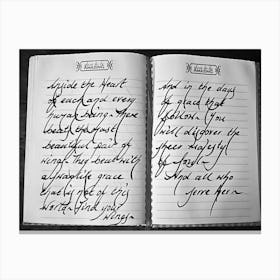 Inside the Heart
of each and every
human being. There
beats the most
beautiful pair of
wings. They beat with
a swanlike grace
that is not of this
world. Find your
wings~
And in the days
of grace that
follow. You
will discover the
sheer Majesty
of
And all who
serve